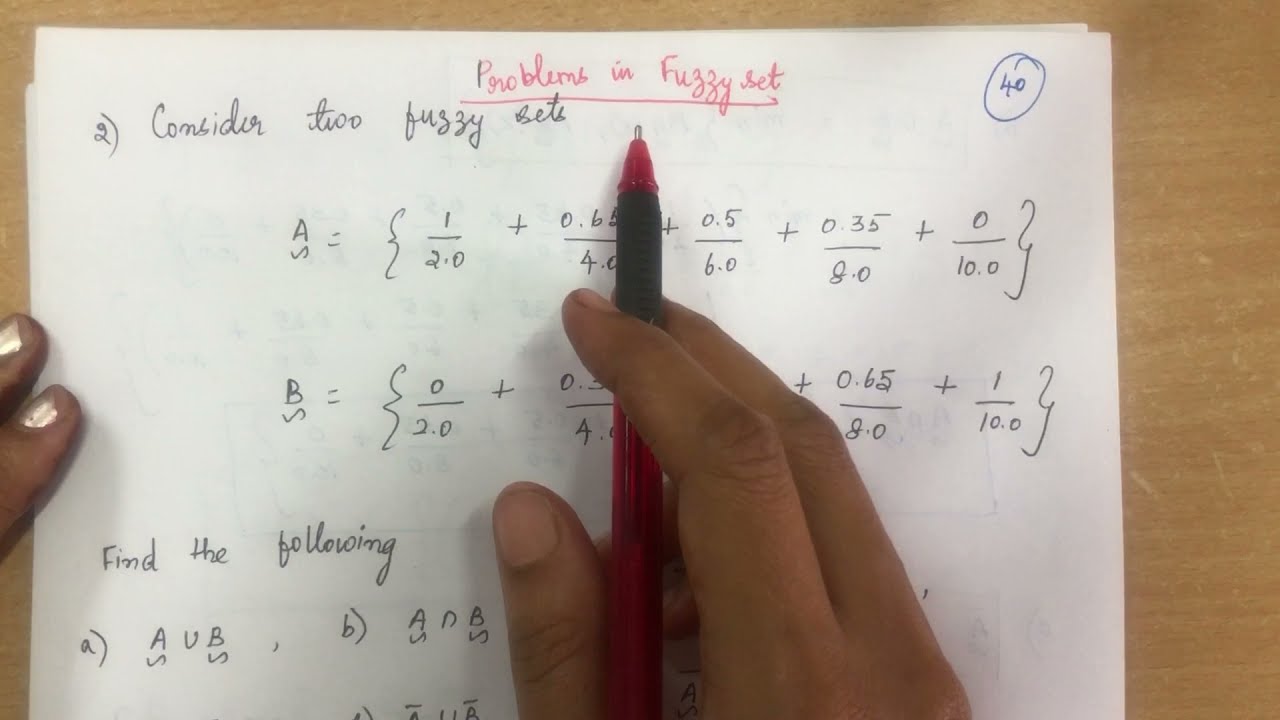 Problems in Fuzzy set
40
2) Consider two fuzzy sets
A = { 1/2.0 + 0.65/4.0 + 0.5/6.0 + 0.35/8.0 + 0/10.0 }
B = { 0/2.0 + 0.3 /4.0 + 0.65/8.0 + 1/10.0 }
Find the following
a) A ∪ B , b) A ∩ B ,
Ā ∪ B̄ Ā